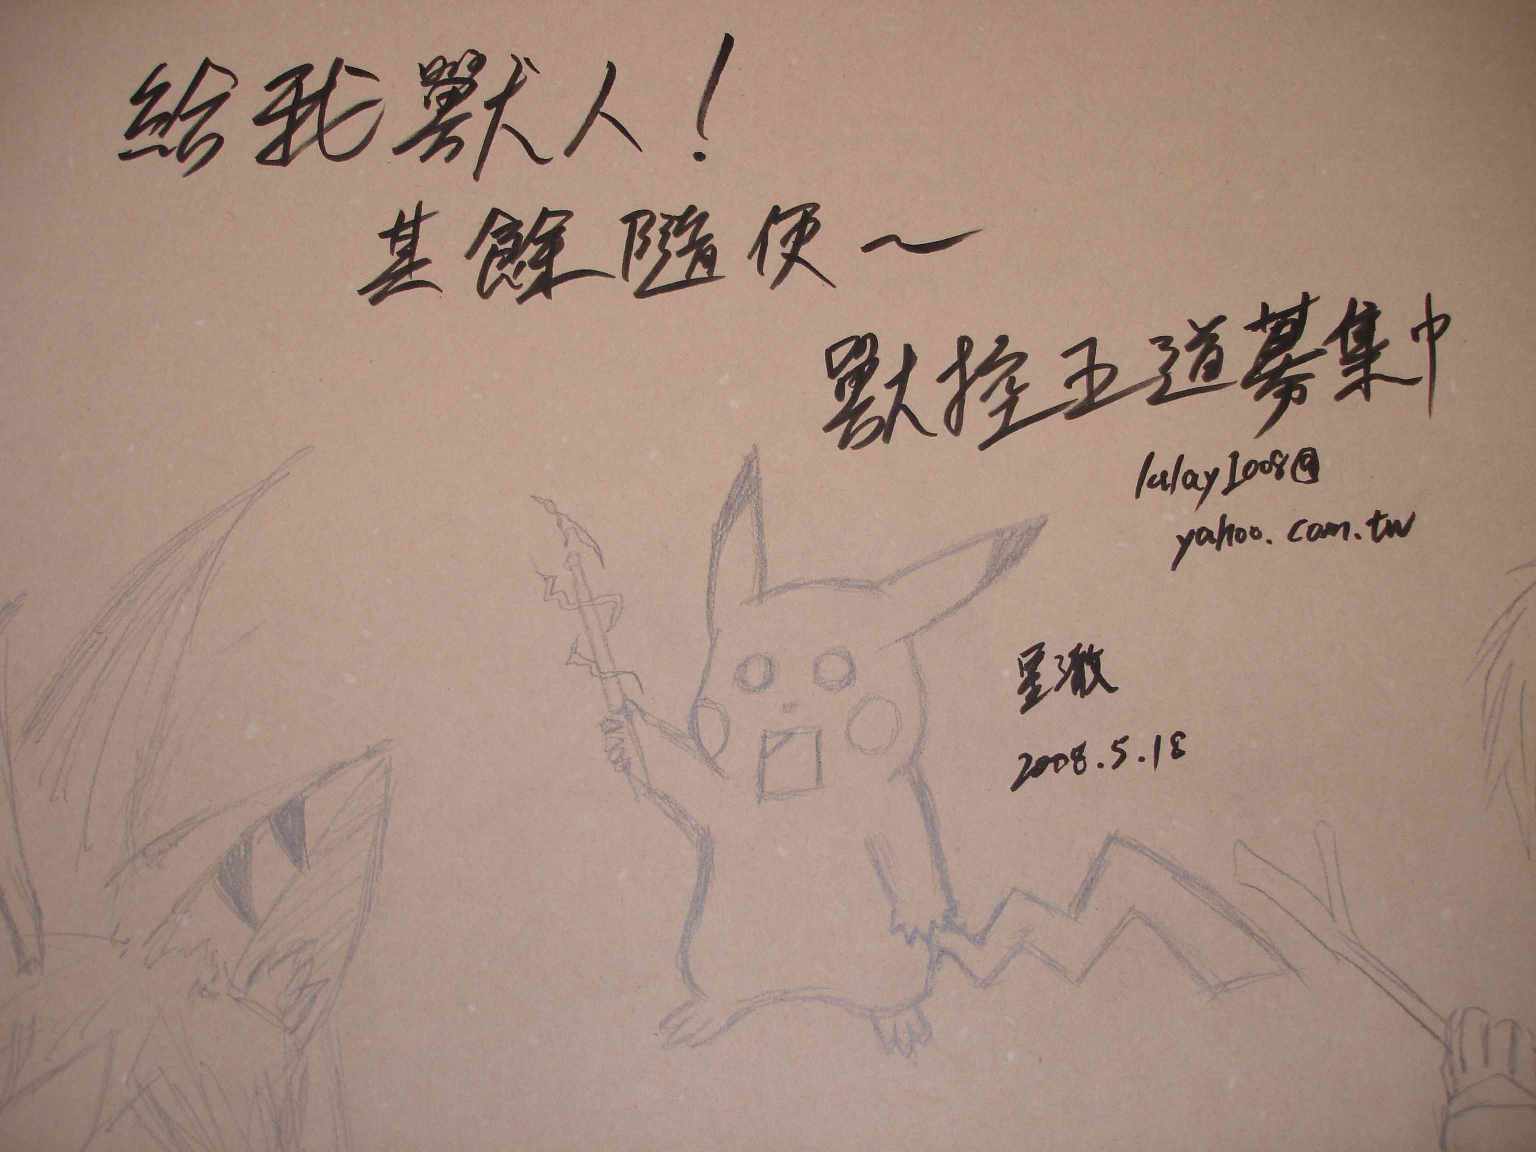 給我獸人!
其餘隨便~
獸控王道募集中
lulay1008@
yahoo.com.tw
星澈
2008.5.18